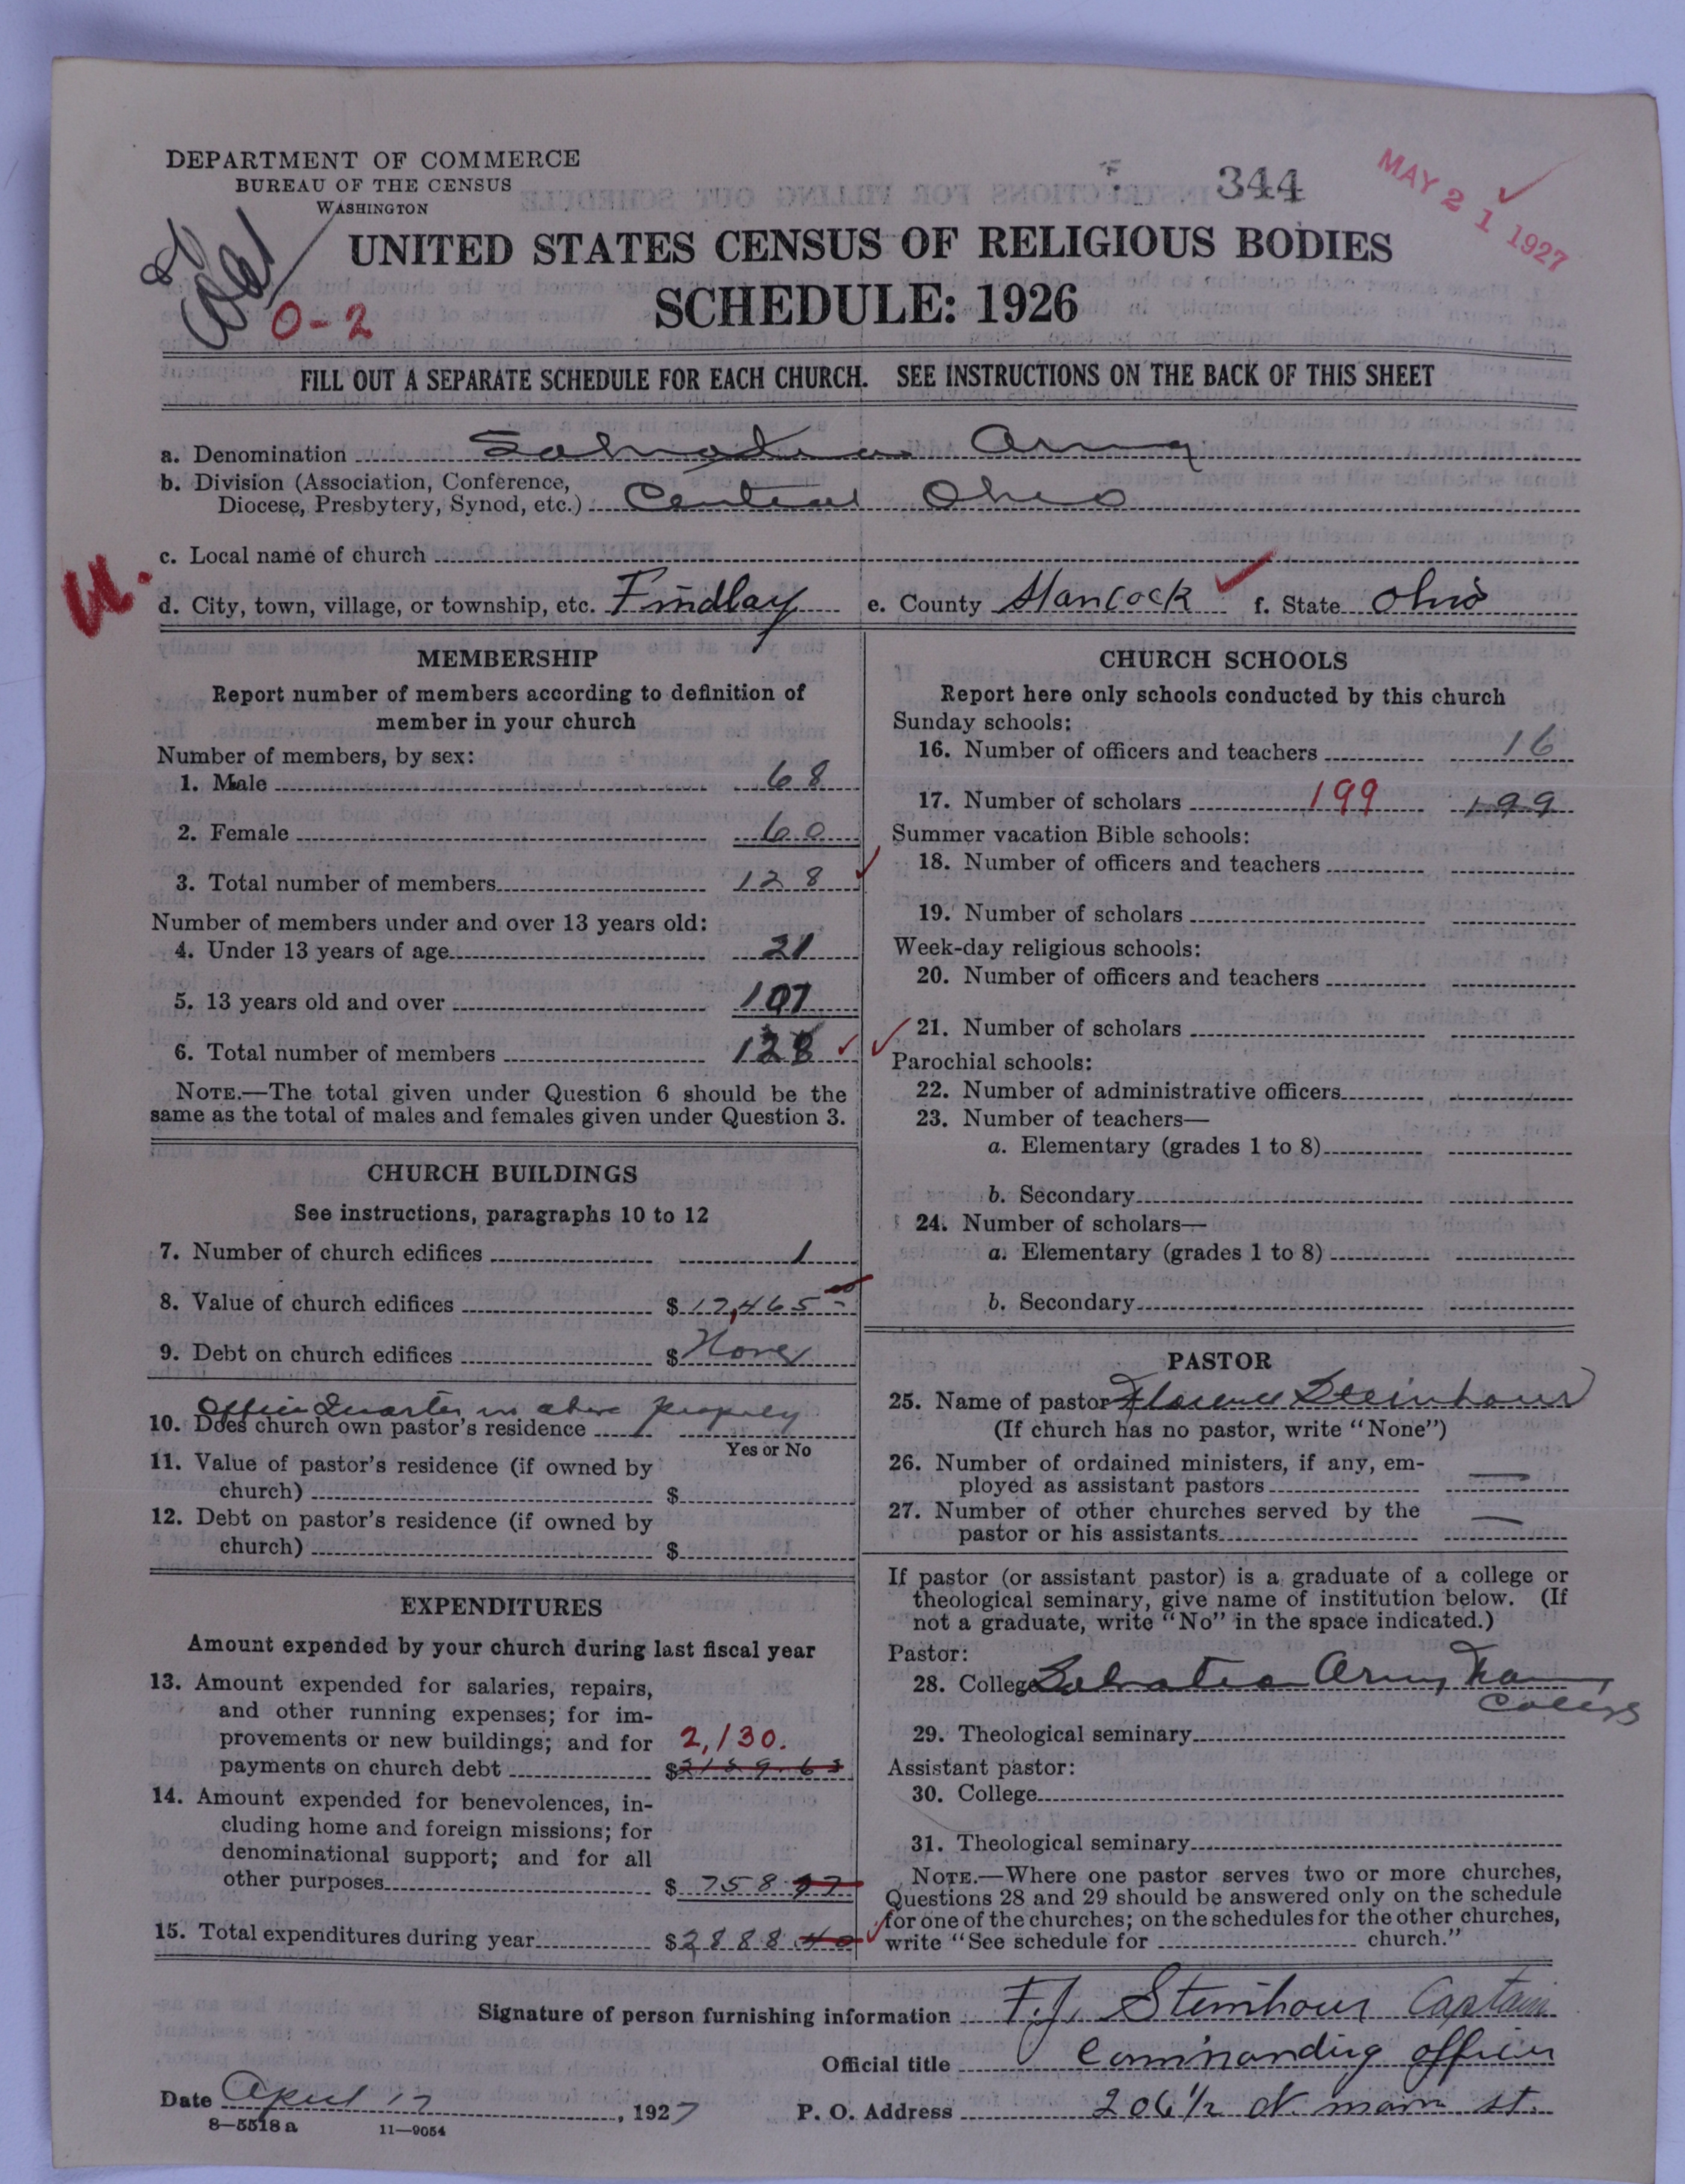 DEPARTMENT OF COMMERCE
BUREAU OF THE CENSUS
WASHINGTON
344
MAY 21 1927
UNITED STATES CENSUS OF RELIGIOUS BODIES
SCHEDULE: 1926
0-2
FILL OUT A SEPARATE SCHEDULE FOR EACH CHURCH. SEE INSTRUCTIONS ON THE BACK OF THIS SHEET
a. Denomination Salvation Army
b. Division (Association, Conference,
Diocese, Presbytery, Synod, etc.) Central Ohio
c. Local name of church
d. City, town, village, or township, etc. Findlay e. County Hancock f. State Ohio
MEMBERSHIP
Report number of members according to definition of
member in your church
Number of members, by sex:
1. Male 68
2. Female 60
3. Total number of members 128
Number of members under and over 13 years old:
4. Under 13 years of age 21
5. 13 years old and over 107
6. Total number of members 128
NOTE.—The total given under Question 6 should be the
same as the total of males and females given under Question 3.
CHURCH BUILDINGS
See instructions, paragraphs 10 to 12
7. Number of church edifices 1
8. Value of church edifices $ 17,465
9. Debt on church edifices $ None
Officer Quarters in above property
10. Does church own pastor's residence
Yes or No
11. Value of pastor's residence (if owned by
church) $
12. Debt on pastor's residence (if owned by
church) $
EXPENDITURES
Amount expended by your church during last fiscal year
13. Amount expended for salaries, repairs,
and other running expenses; for im-
provements or new buildings; and for 2,130.
payments on church debt $ 2129.63
14. Amount expended for benevolences, in-
cluding home and foreign missions; for
denominational support; and for all
other purposes $ 758 77
15. Total expenditures during year $ 2888 40
CHURCH SCHOOLS
Report here only schools conducted by this church
Sunday schools:
16. Number of officers and teachers 16
17. Number of scholars 199 199
Summer vacation Bible schools:
18. Number of officers and teachers
19. Number of scholars
Week-day religious schools:
20. Number of officers and teachers
21. Number of scholars
Parochial schools:
22. Number of administrative officers
23. Number of teachers—
a. Elementary (grades 1 to 8)
b. Secondary
24. Number of scholars—
a. Elementary (grades 1 to 8)
b. Secondary
PASTOR
25. Name of pastor Florence Steinhour
(If church has no pastor, write "None")
26. Number of ordained ministers, if any, em-
ployed as assistant pastors —
27. Number of other churches served by the
pastor or his assistants —
If pastor (or assistant pastor) is a graduate of a college or
theological seminary, give name of institution below. (If
not a graduate, write "No" in the space indicated.)
Pastor:
28. College Salvation Army
College
29. Theological seminary
Assistant pastor:
30. College
31. Theological seminary
NOTE.—Where one pastor serves two or more churches,
Questions 28 and 29 should be answered only on the schedule
for one of the churches; on the schedules for the other churches,
write "See schedule for church."
Signature of person furnishing information F.J. Steinhour Captain
Official title Commanding officer
Date April 17, 1927 P. O. Address 206 1/2 N. main st.
8—5518 a 11—9054